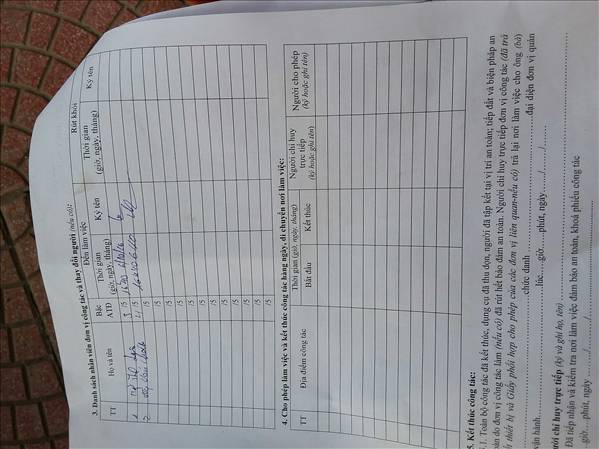 3. Danh sách nhân viên đơn vị công tác và thay đổi người (nếu có):
TT
Họ và tên
Bậc ATĐ
Đến làm việc
Rút khỏi
Thời gian (giờ, ngày tháng)
Ký tên
Thời gian (giờ, ngày, tháng)
Ký tên
1
3 /5
2
4 /5
/5
/5
/5
/5
/5
/5
/5
/5
/5
4. Cho phép làm việc và kết thúc công tác hàng ngày, di chuyển nơi làm việc:
TT
Địa điểm công tác
Thời gian (giờ, ngày, tháng)
Bắt đầu
Kết thúc
Người chỉ huy trực tiếp (ký hoặc ghi tên)
Người cho phép (ký hoặc ghi tên)
5. Kết thúc công tác:
5.1. Toàn bộ công tác đã kết thúc, dụng cụ đã thu dọn, người đã tập kết tại vị trí an toàn; tiếp đất và biện pháp an
toàn do đơn vị công tác làm (nếu có) đã rút hết bảo đảm an toàn. Người chỉ huy trực tiếp đơn vị công tác (đã trả
thiết bị và Giấy phối hợp cho phép của các đơn vị liên quan-nếu có) trả lại nơi làm việc cho ông (bà)
chức danh đại diện đơn vị quản
vận hành lúc giờ phút, ngày / /
Người chỉ huy trực tiếp (ký và ghi họ, tên)
Đã tiếp nhận và kiểm tra nơi làm việc đảm bảo an toàn, khóa phiếu công tác
giờ phút, ngày / /